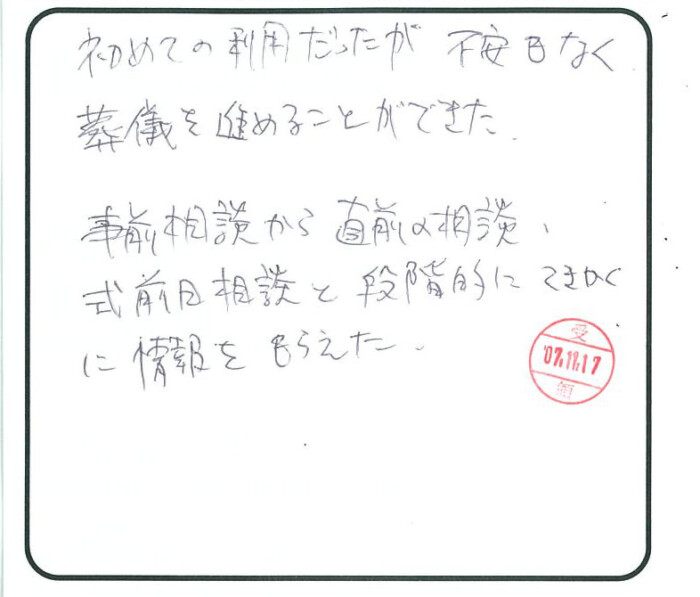 初めての利用だったが 不安もなく
葬儀を進めることができた.
事前相談から 直前の相談、
式前日相談と段階的に てきかく
に情報をもらえた.
受
'07.11.17
領